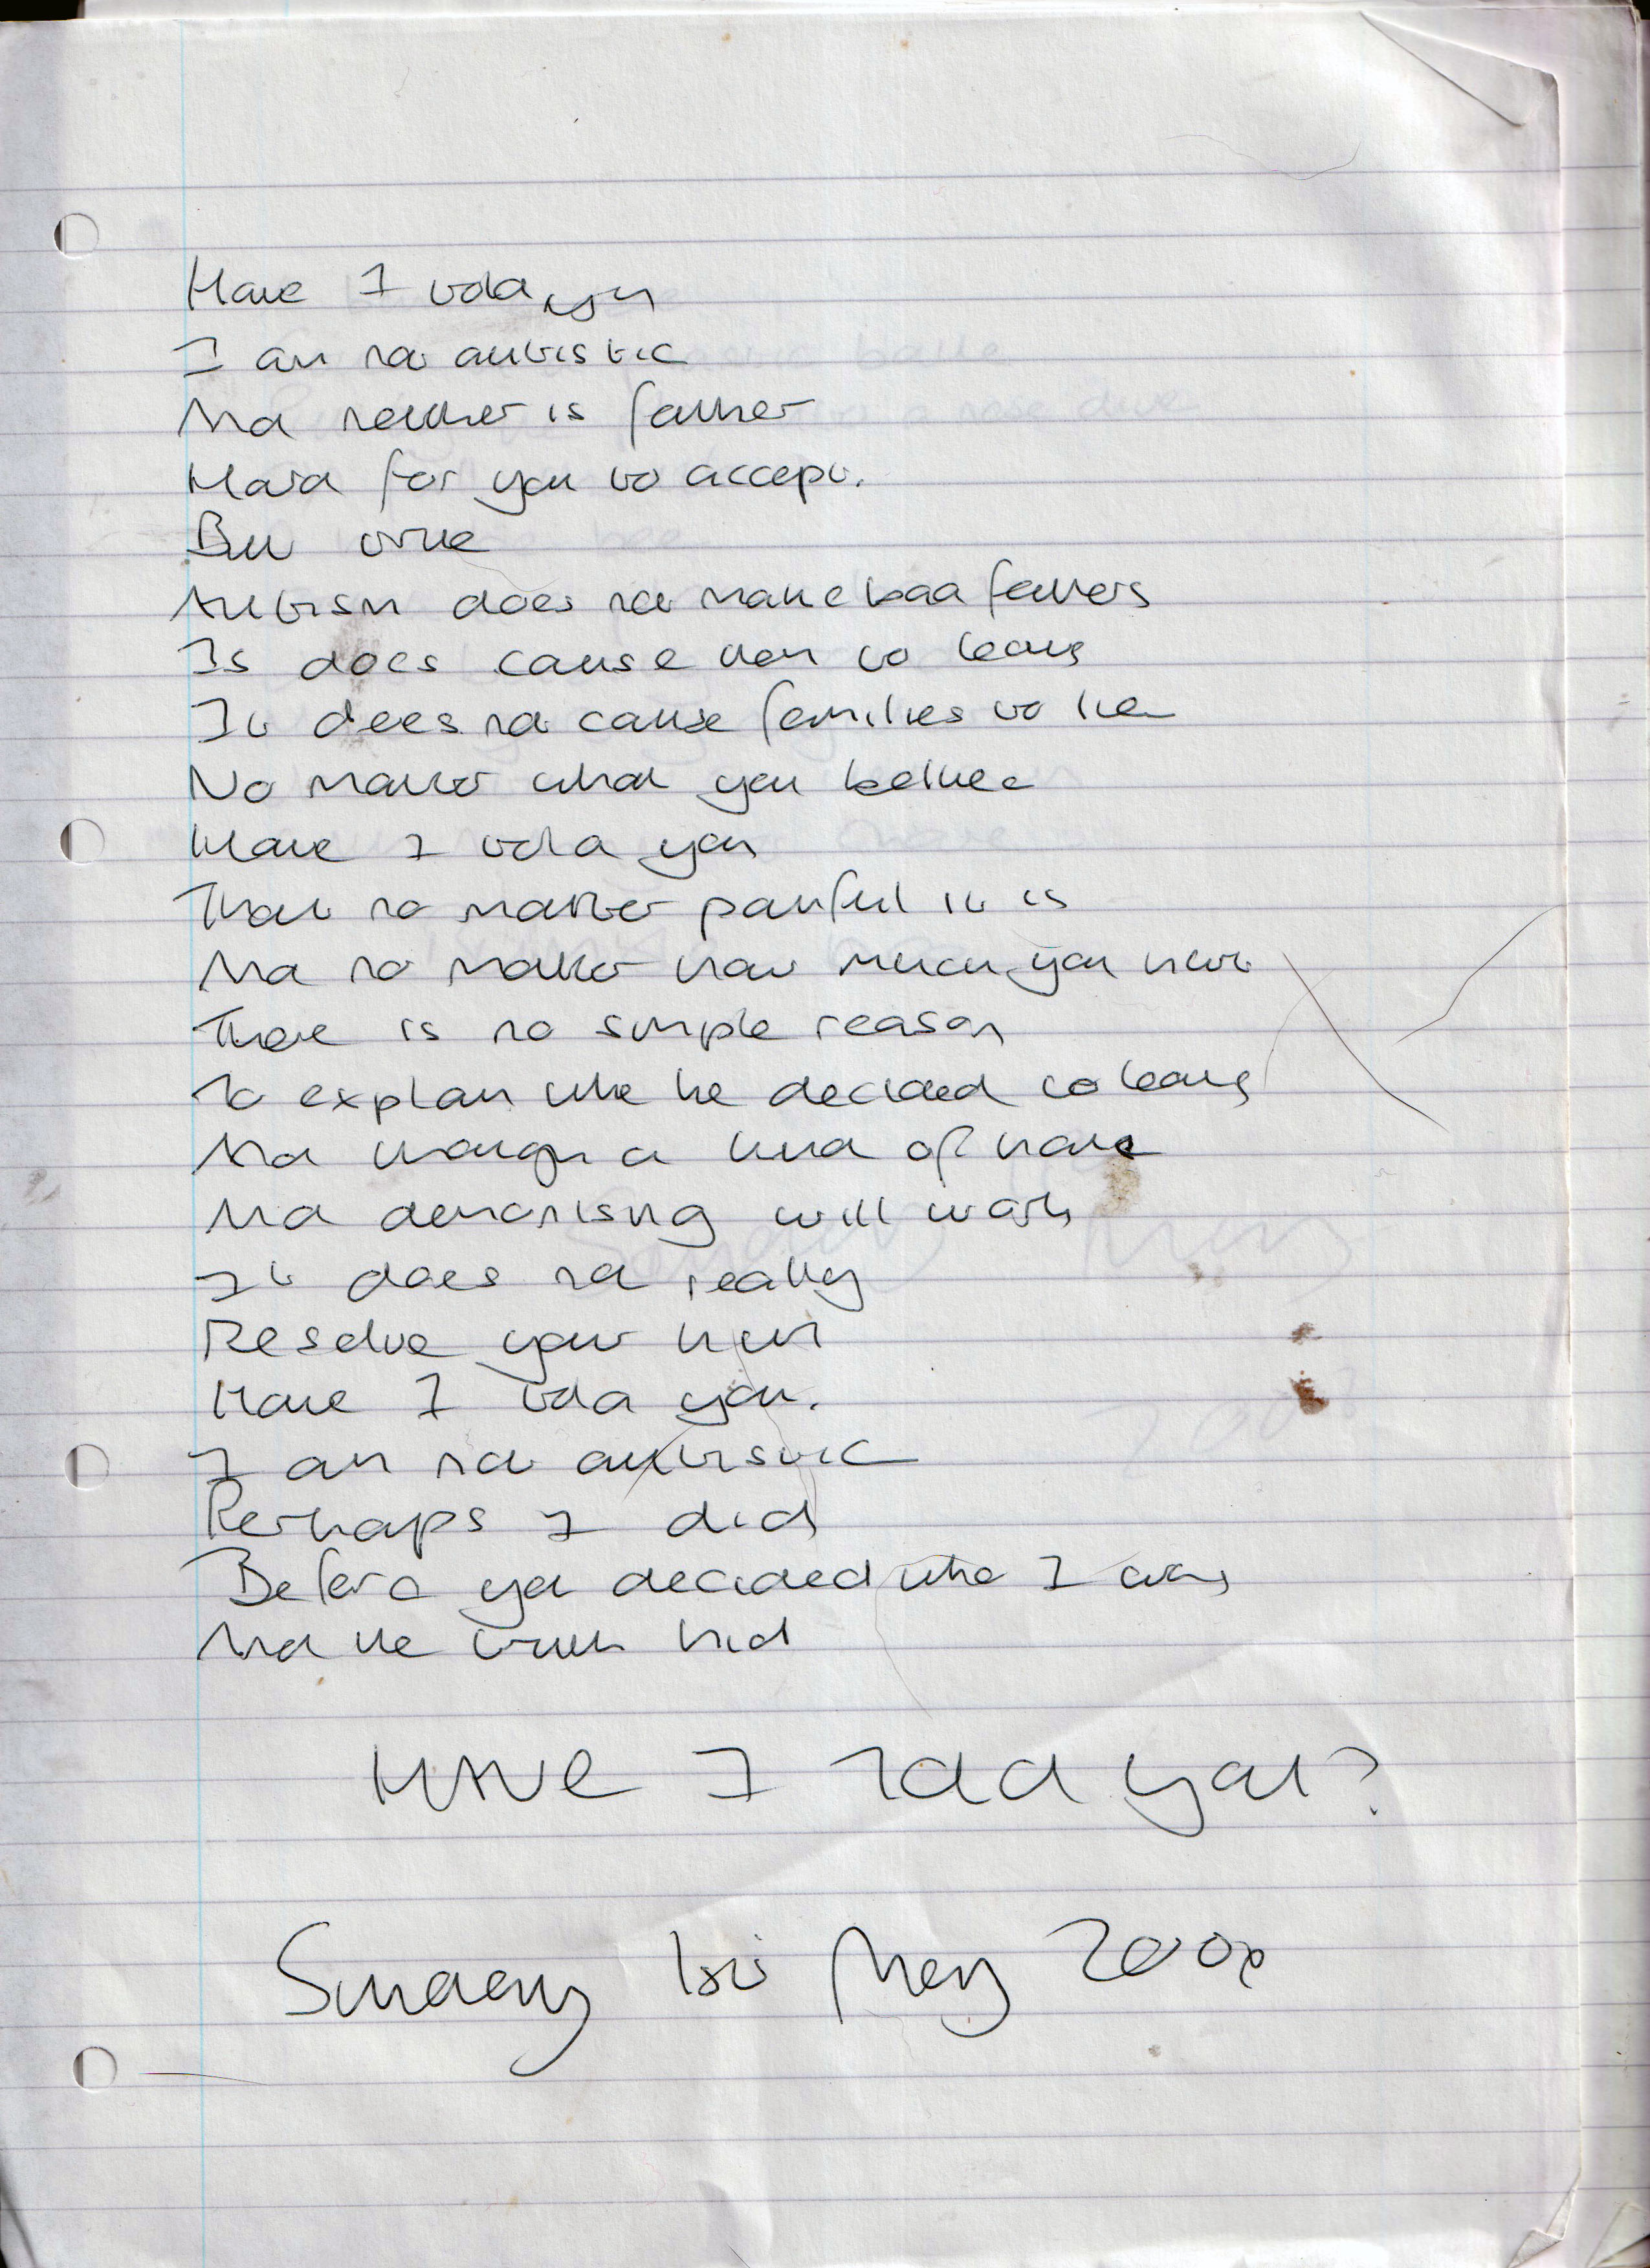 Have I told you
I am not autistic
And neither is father
Hard for you to accept.
But true
Autism does not make bad fathers
Is does cause them to leave
It does not cause families to
No matter what you believe
Have I told you
That no matter painful it is
And no matter how much you hurt
There is no simple reason
To explain why he decided to leave
And though a kind of hate
And demonising will work
It does not really
Resolve your hurt
Have I told you.
I am not autistic
Perhaps I did
Before you decided who I was
And the truth hid
HAVE I Told you?
Sunday 1st May